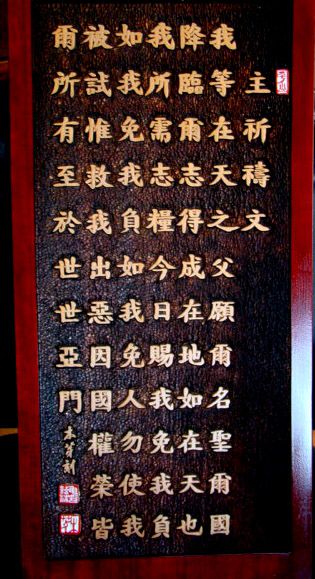 主祈禱文
我等在天之父願爾名聖爾國
降臨爾志得成在地如在天也
我所需志糧今日賜我免我負
如我免我負如我免人勿使我
被試惟救我出惡因國權榮皆
爾所有至於世世亞門